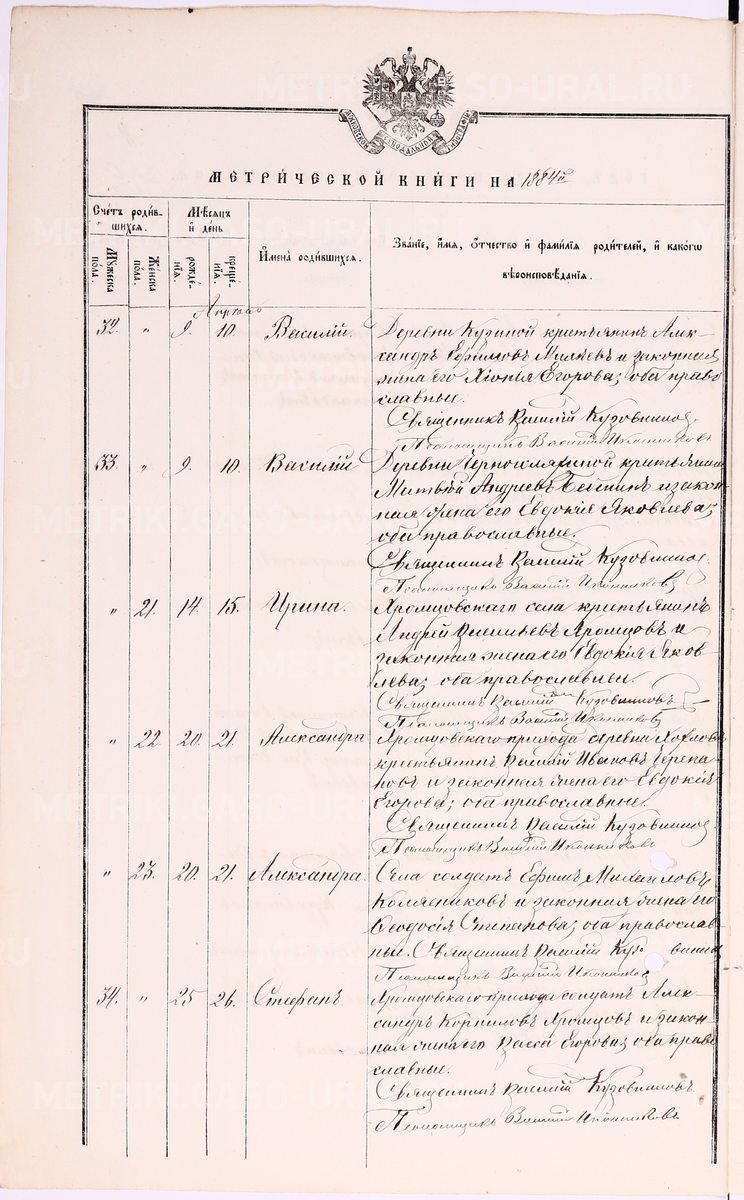 МЕТРИ́ЧЕСКОЙ КНИ́ГИ НА 1884й
Счетъ роди́в-
шихся.
Мѣсяцъ
и день
Имена роди́вшихся.
Зва́нїе, и́мя, о́тчество и фами́лїя роди́телей, и како́гѡ
вѣроисповѣ́данїя.
Му́жеска по́ла.
Же́нска по́ла.
рожде́нїя.
креще́нїя.
Апрѣль
32 " 9. 10. Василій.
Деревни Кузиной крестьянинъ Алек-
сандръ Ефимовъ и законная
жена его Хіонія Егорова; оба право
славные.
Священникъ Василій Кузовниковъ
Псаломщикъ Василій Иконниковъ
33. " 9. 10. Василій
Деревни крестьянинъ
Матвѣй Андреевъ и закон-
ная жена его Евдокія Яковлева;
оба православные.
Священникъ Василій Кузовниковъ
Псаломщикъ Василій Иконниковъ
" 21. 14. 15. Ирина.
Хромцовскаго села крестьянинъ
Андрей Васильевъ Хромцовъ и
законная жена его Евдокія Яков-
лева; оба православные.
Священникъ Василій Кузовниковъ
Псаломщикъ Василій Иконниковъ
" 22 20. 21. Александра
Хромцовскаго прихода деревни
крестьянинъ Василій Ивановъ Черепа-
новъ и законная жена его Евдокія
Егорова; оба православные.
Священникъ Василій Кузовниковъ
Псаломщикъ Василій Иконниковъ
" 23. 20. 21. Александра.
Села солдатъ Ефимъ Михайловъ
и законная жена его
Ѳеодосія Степанова; оба православ-
ные. Священникъ Василій
Псаломщикъ Василій Иконниковъ
34. " 25 26. Стефанъ
Хромцовскаго прихода солдатъ Алек-
сандръ Корниловъ Хромцовъ и закон-
ная жена его Васса Егорова; оба право
славные.
Священникъ Василій Кузовниковъ
Псаломщикъ Василій Иконниковъ